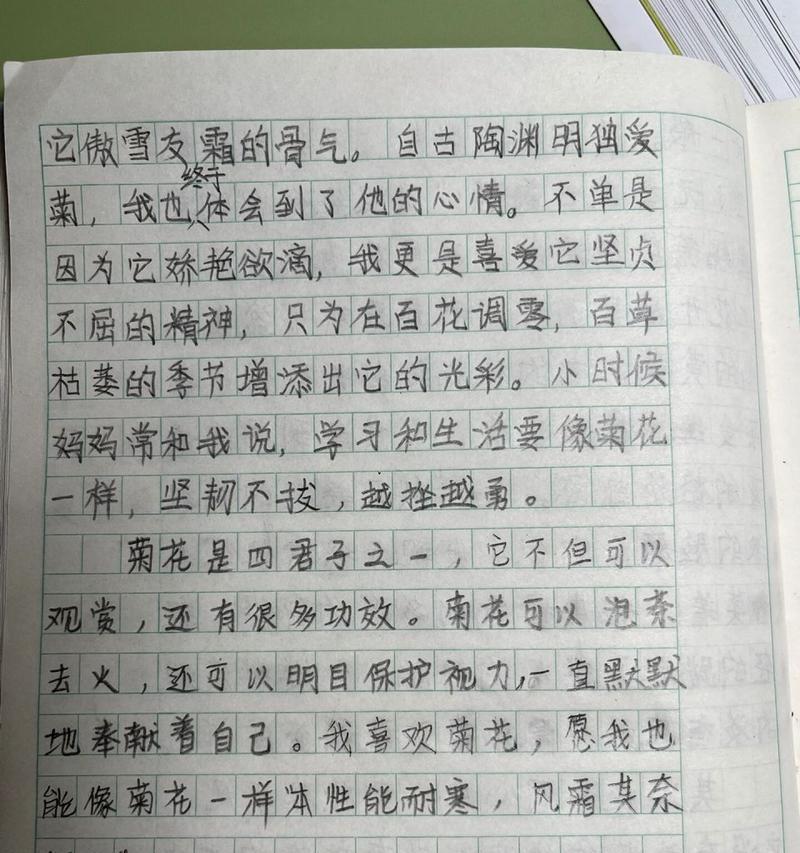 它傲雪友霜的骨气。自古陶渊明独爱
菊，我也终于体会到了他的心情。不单是
因为它娇艳欲滴，我更是喜爱它坚贞
不屈的精神，只为在百花调零，百草
枯萎的季节增添出它的光彩。小时候
妈妈常和我说，学习和生活要像菊花
一样，坚韧不拔，越挫越勇。
菊花是四君子之一，它不但可以
观赏，还有很多功效。菊花可以泡茶
去火，还可以明目保护视力，一直默默
地奉献着自己。我喜欢菊花，愿我也
能像菊花一样体性能耐寒，风霜其奈